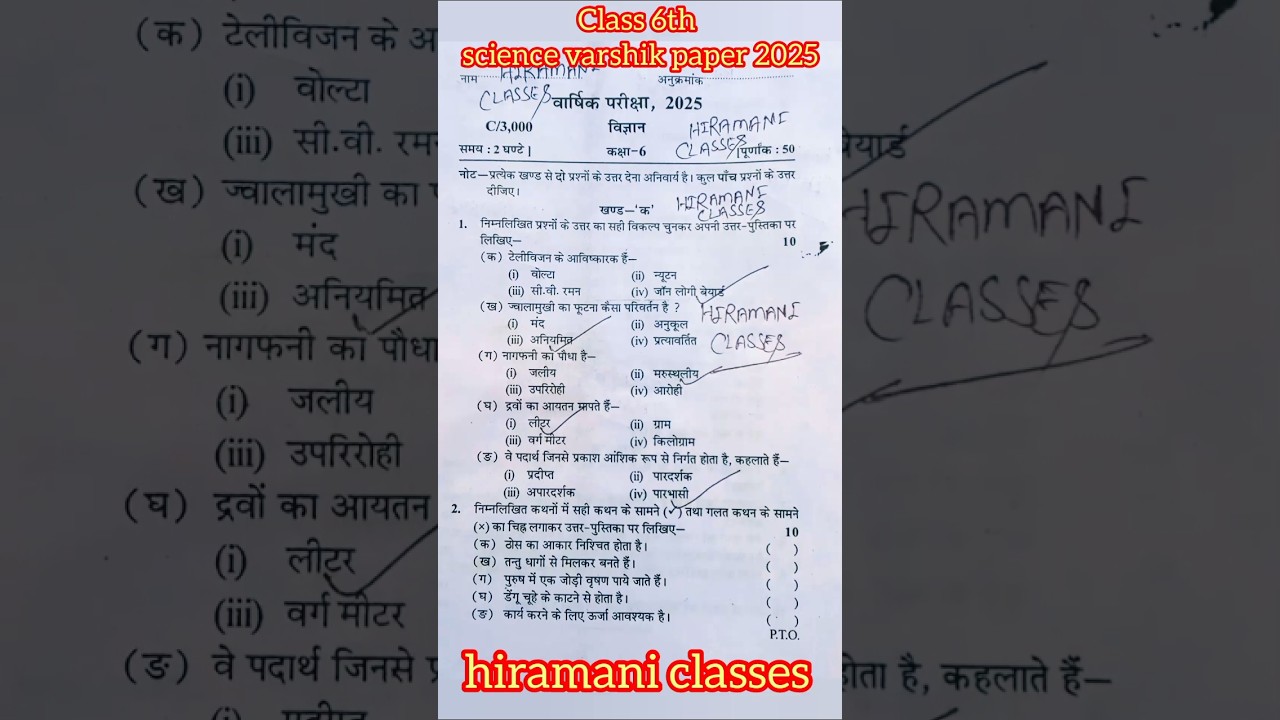 Class 6th
science varshik paper 2025
नाम HIRAMANI CLASSES अनुक्रमांक
वार्षिक परीक्षा, 2025
C/3,000 विज्ञान HIRAMANI CLASSES
समय : 2 घण्टे | कक्षा-6 |पूर्णांक : 50
नोट—प्रत्येक खण्ड से दो प्रश्नों के उत्तर देना अनिवार्य है। कुल पाँच प्रश्नों के उत्तर
दीजिए।
खण्ड—'क' HIRAMANI CLASSES
1. निम्नलिखित प्रश्नों के उत्तर का सही विकल्प चुनकर अपनी उत्तर-पुस्तिका पर
लिखिए— 10
(क) टेलीविजन के आविष्कारक हैं—
(i) वोल्टा (ii) न्यूटन
(iii) सी.वी. रमन (iv) जॉन लोगी बेयार्ड
(ख) ज्वालामुखी का फूटना कैसा परिवर्तन है ? HIRAMANI
(i) मंद (ii) अनुकूल
(iii) अनियमित (iv) प्रत्यावर्तित CLASSES
(ग) नागफनी का पौधा है—
(i) जलीय (ii) मरुस्थलीय
(iii) उपरिरोही (iv) आरोही
(घ) द्रवों का आयतन मापते हैं—
(i) लीटर (ii) ग्राम
(iii) वर्ग मीटर (iv) किलोग्राम
(ङ) वे पदार्थ जिनसे प्रकाश आंशिक रूप से निर्गत होता है, कहलाते हैं—
(i) प्रदीप्त (ii) पारदर्शक
(iii) अपारदर्शक (iv) पारभासी
2. निम्नलिखित कथनों में सही कथन के सामने (✓) तथा गलत कथन के सामने
(×) का चिह्न लगाकर उत्तर-पुस्तिका पर लिखिए— 10
(क) ठोस का आकार निश्चित होता है। ( )
(ख) तन्तु धागों से मिलकर बनते हैं। ( )
(ग) पुरुष में एक जोड़ी वृषण पाये जाते हैं। ( )
(घ) डेंगू चूहे के काटने से होता है। ( )
(ङ) कार्य करने के लिए ऊर्जा आवश्यक है। ( )
P.T.O.
hiramani classes
(क) टेलीविजन के
(i) वोल्टा
(iii) सी.वी. रमन
(ख) ज्वालामुखी का
(i) मंद
(iii) अनियमित
(ग) नागफनी का पौधा
(i) जलीय
(iii) उपरिरोही
(घ) द्रवों का आयतन
(i) लीटर
(iii) वर्ग मीटर
(ङ) वे पदार्थ जिनसे
बेयार्ड
HIRAMANI
CLASSES
होता है, कहलाते हैं—